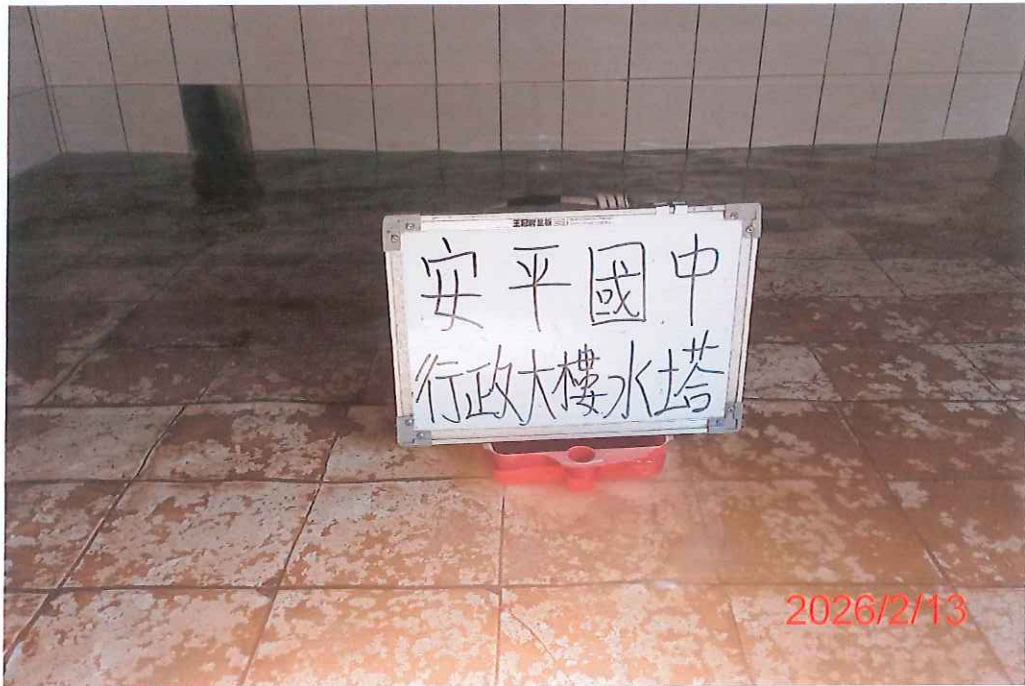 安平國中
行政大樓水塔
2026/2/13